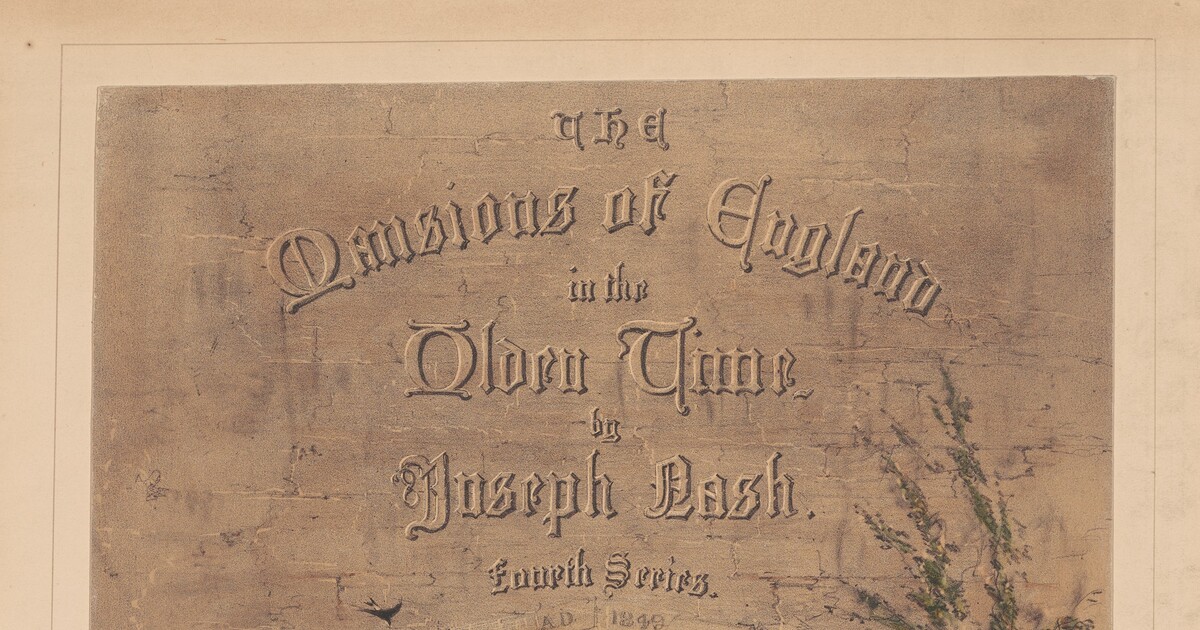 THE
Mansions of England
in the
Olden Time.
by
Joseph Nash.
Fourth Series.
AD 1849